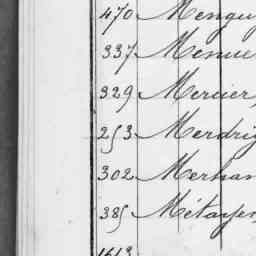 470 Menguy
337 Menue
329 Mercier,
253 Merdrig
302 Merhan
385 Métayer,
1613